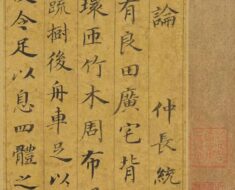 論 仲長統
有良田廣宅背
環匝竹木周布
疏樹後舟車足以
令足以息四體之